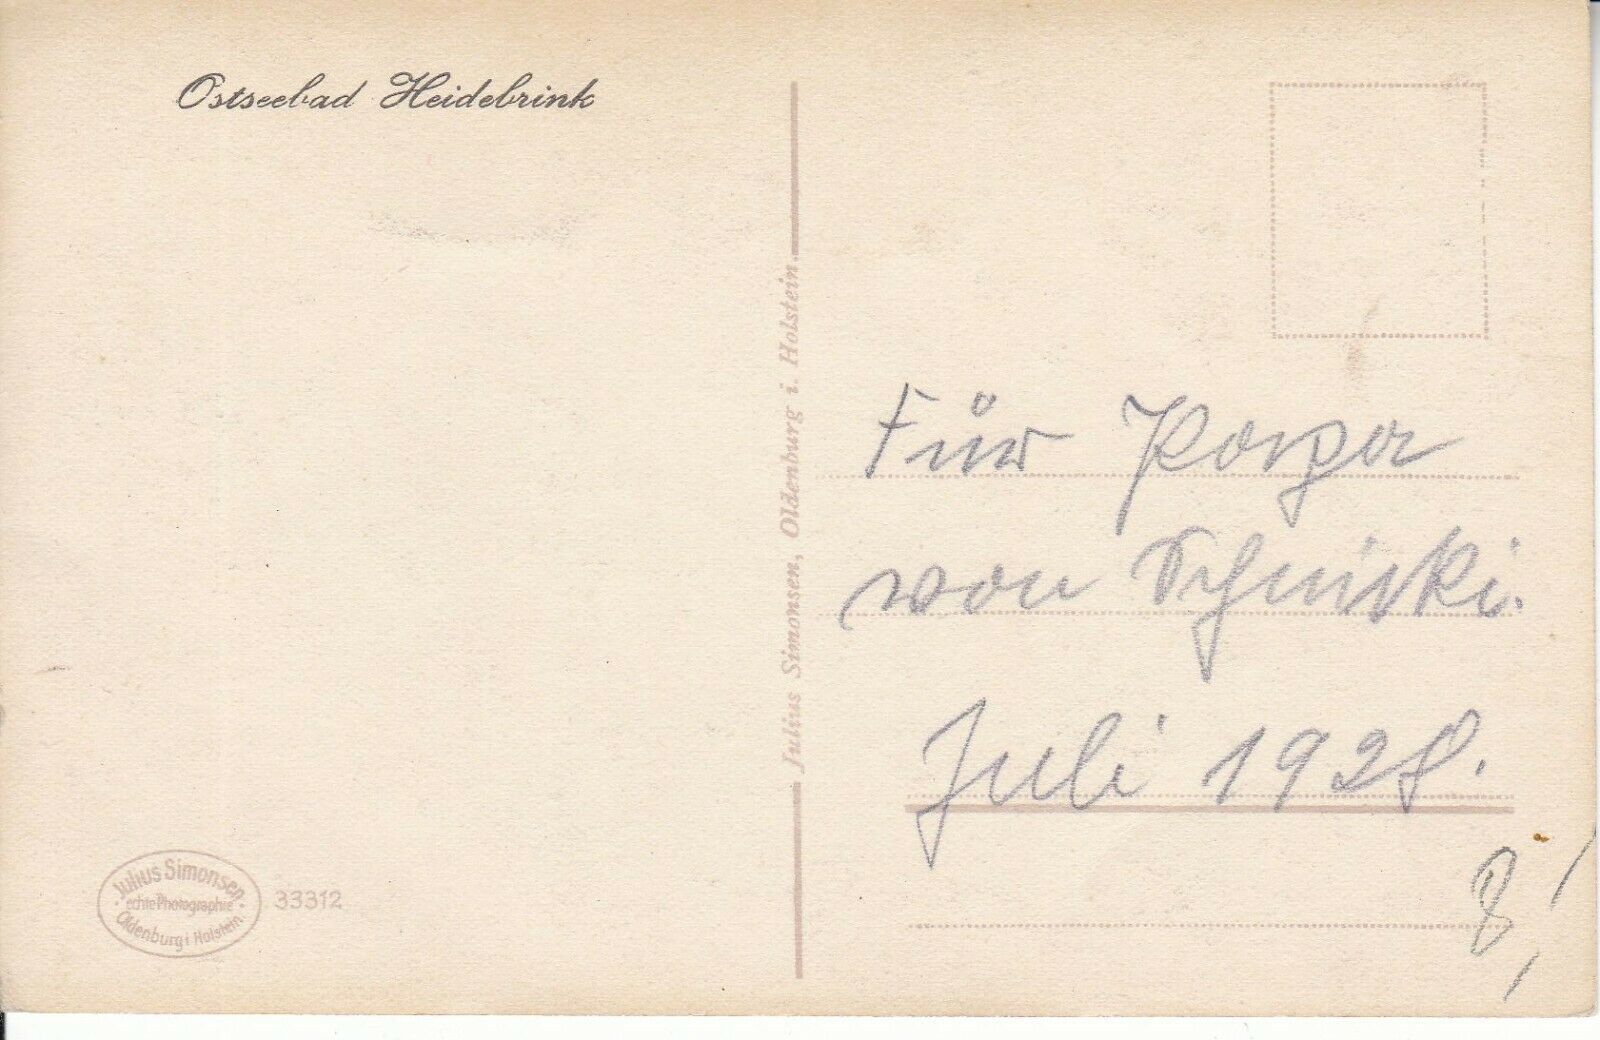 Ostseebad Heidebrink
Julius Simonsen, Oldenburg i. Holstein.
Für
von
Juli 1928.
Julius Simonsen
echte Photographie
Oldenburg i Holstein
33312